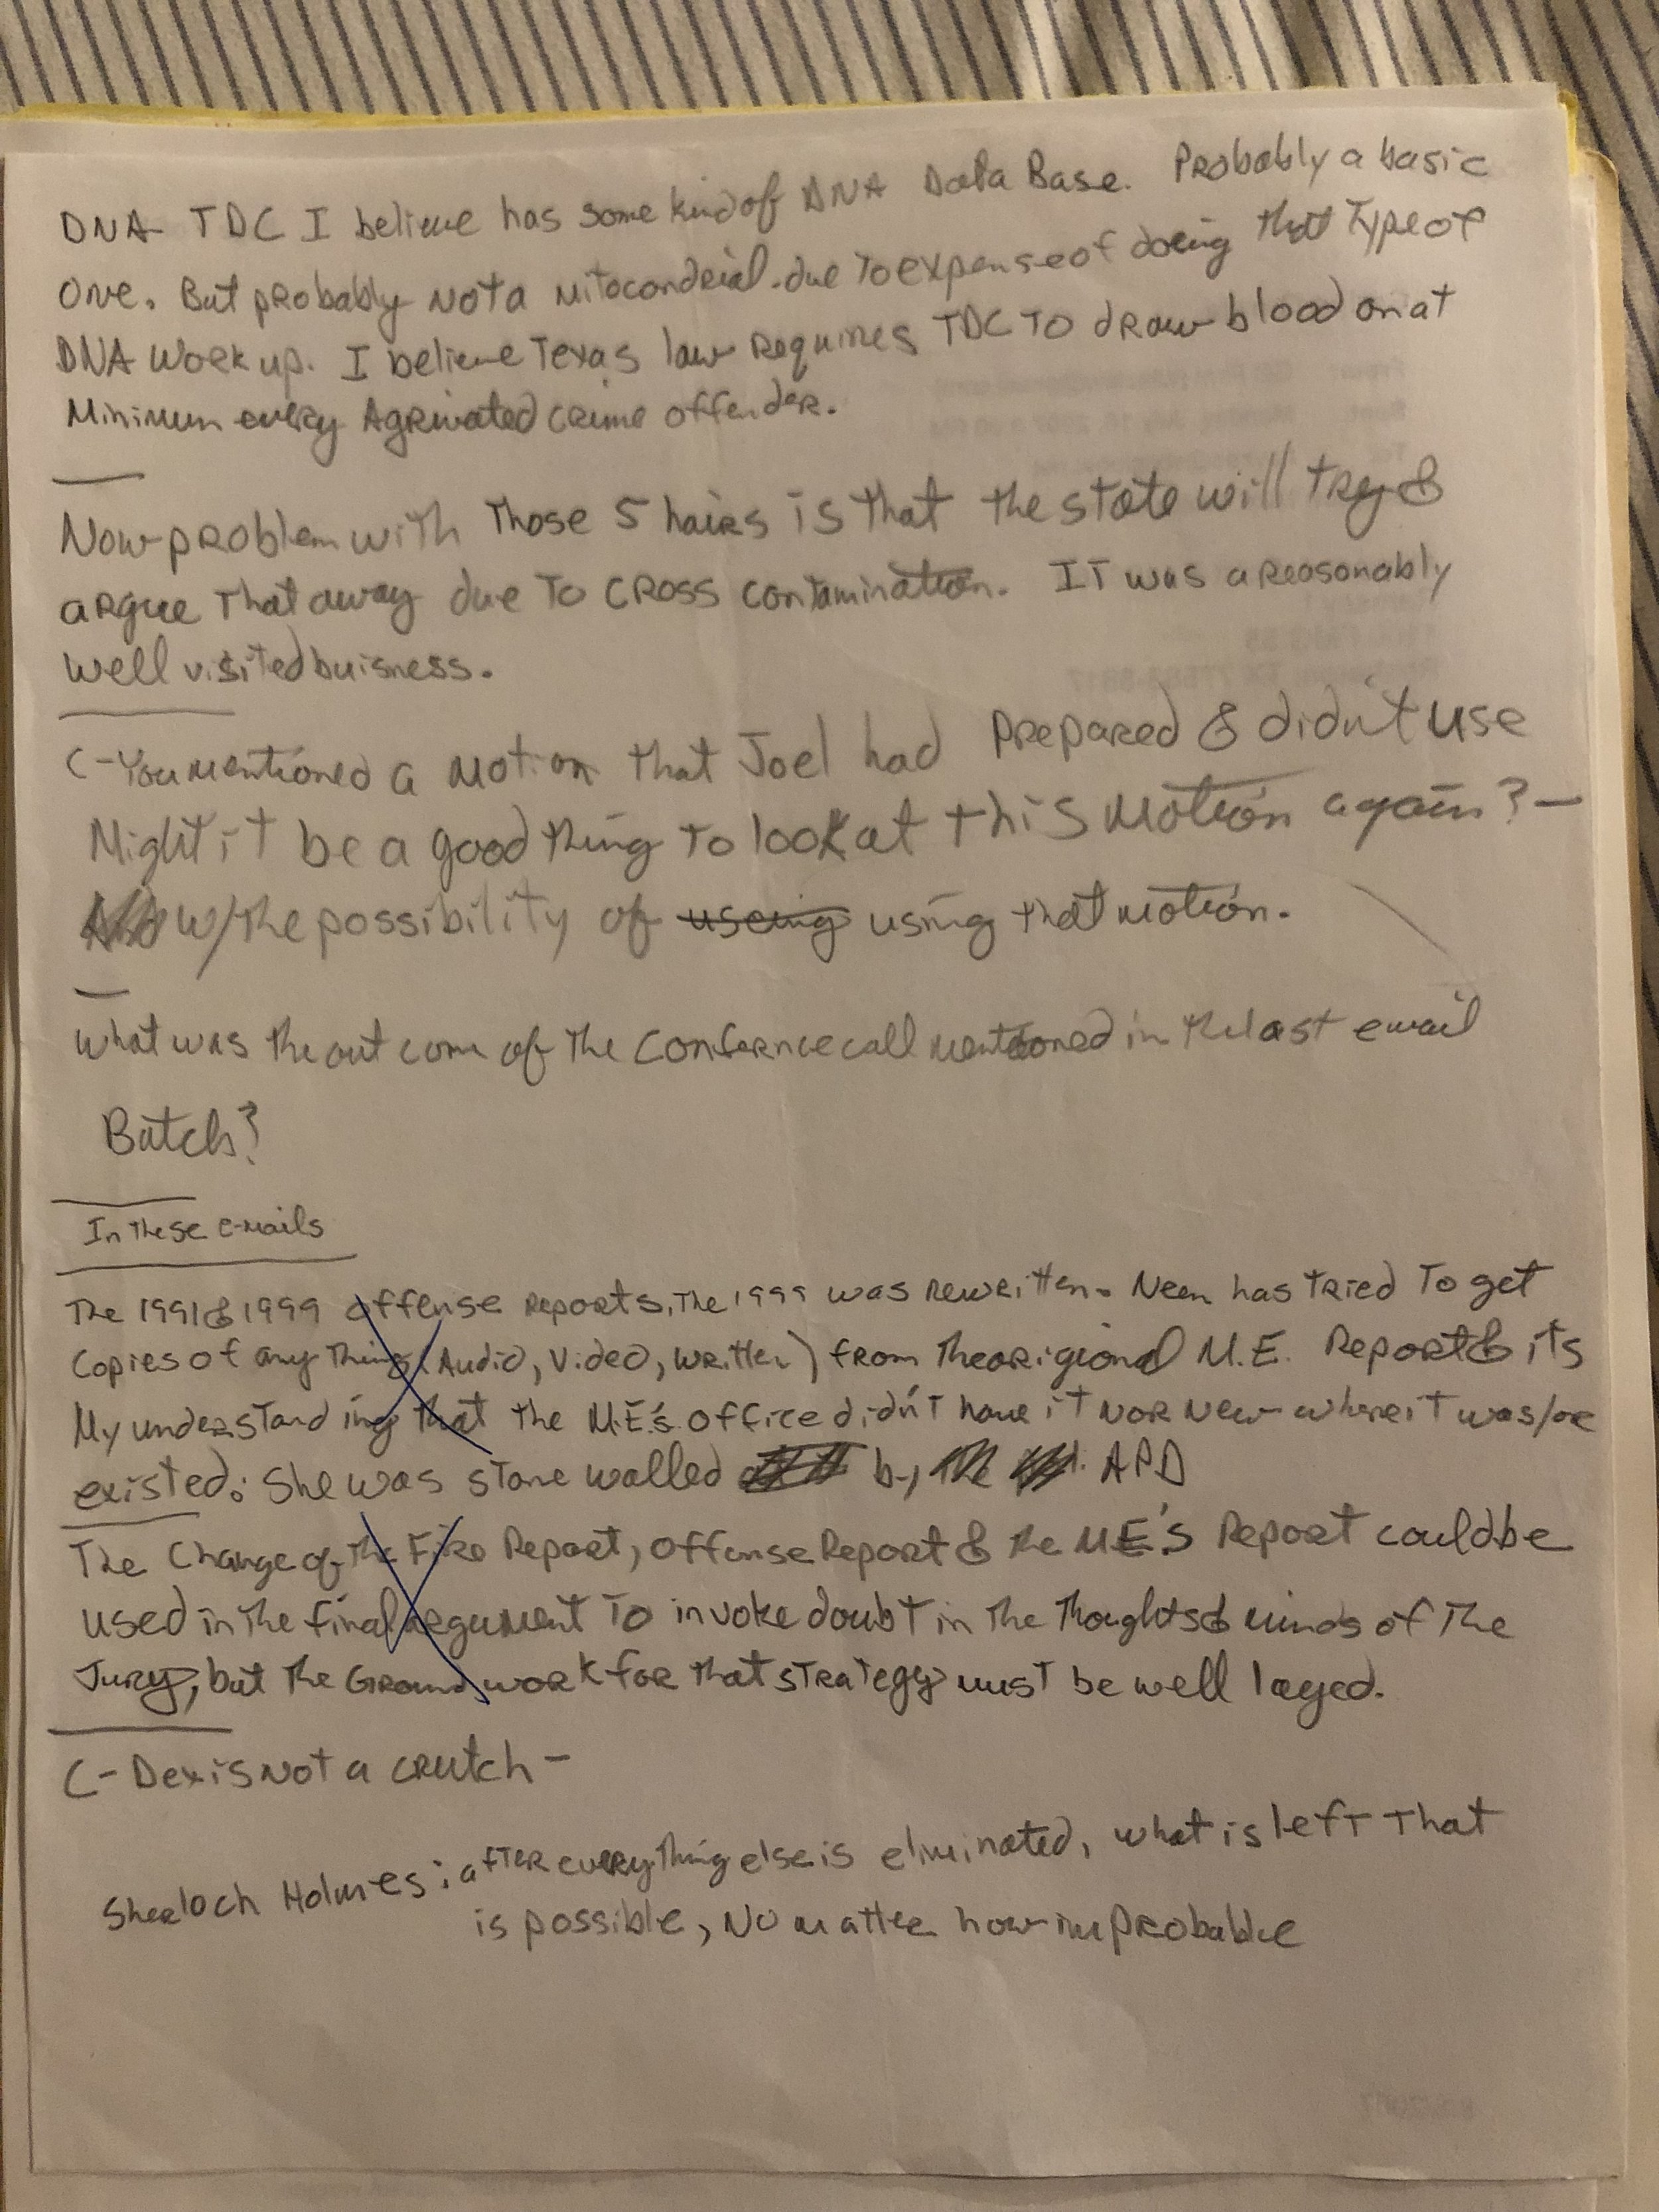 DNA - TDC I believe has some kind of DNA Data Base. Probably a basic
one. But probably not a mitocondrial. due to expense of doing that type of
DNA work up. I believe Texas law requires TDC to draw blood on at
Minimum every Agrivated crime offender.
Now problem with those 5 hairs is that the state will try &
argue that away due to cross contamination. It was a reasonably
well visited buisness.
C - You mentioned a motion that Joel had prepared & didn't use
Might it be a good thing to look at this motion again? -
w/the possibility of useing using that motion.
What was the out come of the Confernce call mentioned in the last email
Batch?
In these e-mails
The 1991 & 1999 offense reports, the 1999 was rewritten. Neen has tried to get
Copies of any thing (Audio, Video, written) from the origional M.E. Report & its
My understanding that the M.E.'s office didn't have it nor new where it was/or
existed: She was stone walled by the APD
The Change of the Fire Report, Offense Report & the ME'S Report could be
used in the final argument to invoke doubt in the thoughts & minds of the
Jury, but the Ground work for that strategy must be well layed.
C - Dex is not a crutch -
Sherloch Holmes: after everything else is eliminated, what is left that
is possible, no matter how improbable